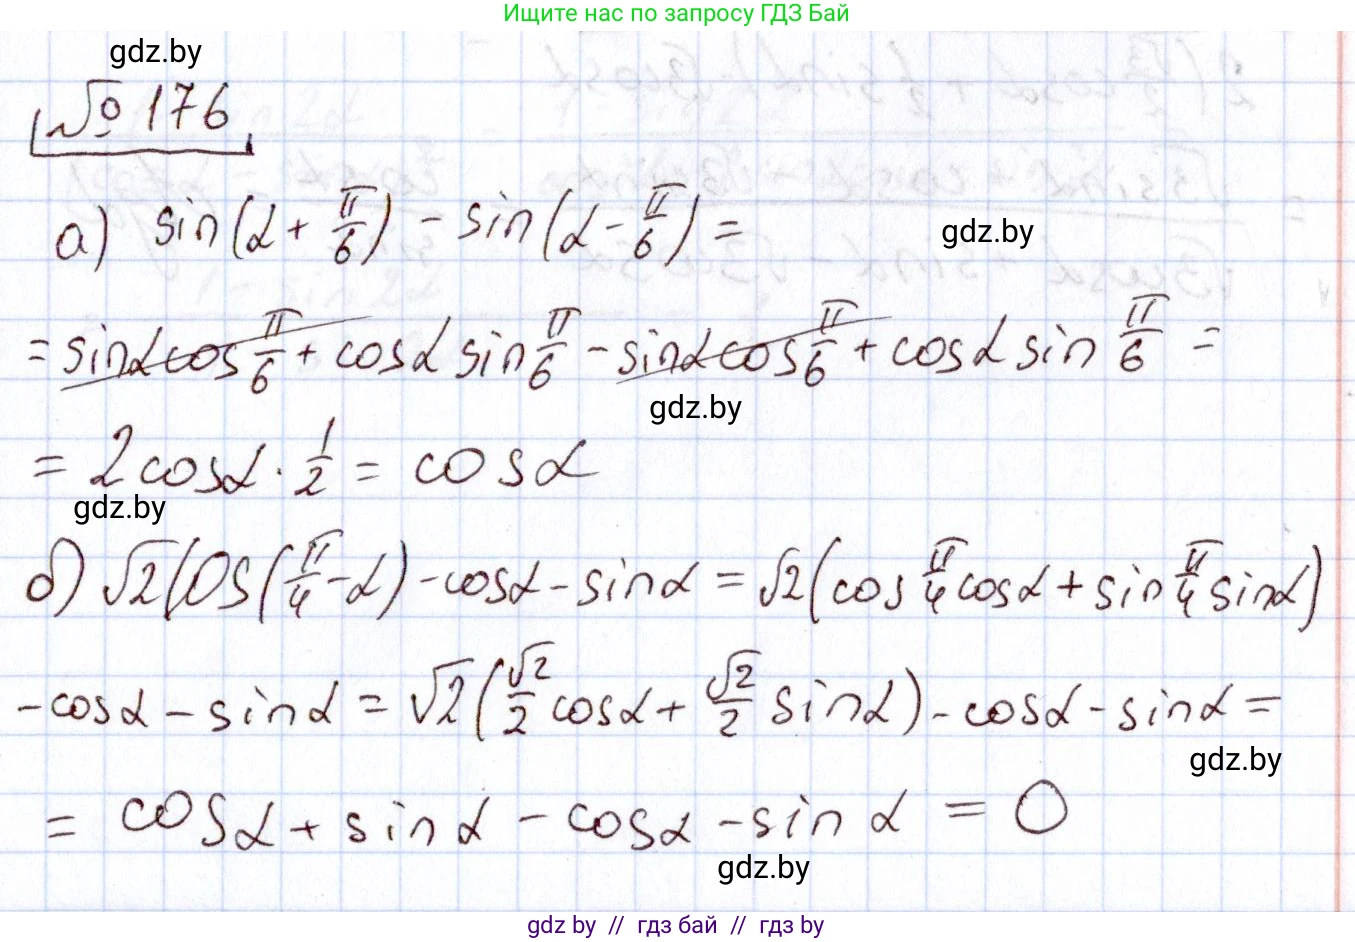 Ищите нас по запросу ГДЗ Бай
gdz.by
№ 176
а) sin(α + π/6) - sin(α - π/6) =
gdz.by
= sinα cos π/6 + cosα sin π/6 - sinα cos π/6 + cosα sin π/6 =
gdz.by
= 2cosα · 1/2 = cosα
gdz.by
б) √2 cos(π/4 - α) - cosα - sinα = √2(cos π/4 cosα + sin π/4 sinα)
- cosα - sinα = √2(√2/2 cosα + √2/2 sinα) - cosα - sinα =
gdz.by
= cosα + sinα - cosα - sinα = 0
gdz.by
gdz.by // гдз бай // гдз by